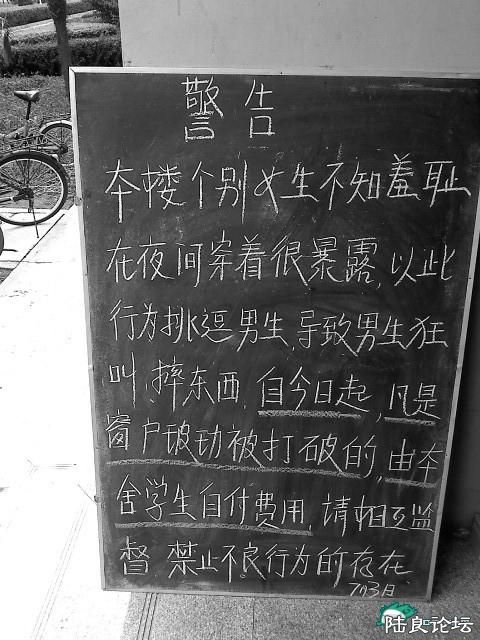 警告
本楼个别女生不知羞耻
在夜间穿着很暴露,以此
行为挑逗男生,导致男生狂
叫,摔东西,自今日起,凡是
窗户玻功被打破的,由本
舍学生自付费用,请相互监
督,禁止不良行为的存在
7月3日
陆良论坛